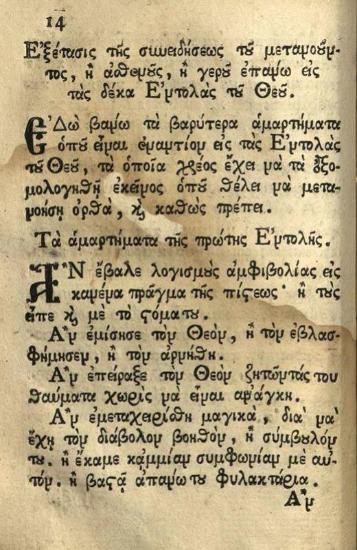 14
Ἐξέτασις τῆς συνειδήσεως τοῦ μετανοοῦν-
τος, ἢ ἀσθενοῦς, ἢ γεροῦ ἐπάνω εἰς
τὰς δέκα Ἐντολὰς τοῦ Θεοῦ.
ΕΔῶ βάνω τὰ βαρύτερα ἁμαρτήματα
ὁποῦ εἶναι ἐναντίον εἰς τὰς Ἐντολὰς
τοῦ Θεοῦ, τὰ ὁποῖα χρέος ἔχει νὰ τὰ ἐξο-
μολογηθῇ ἐκεῖνος ὁποῦ θέλει νὰ μετα-
νοήσῃ ὀρθὰ, ϗ καθὼς πρέπει.
Τὰ ἁμαρτήματα τῆς πρώτης Ἐντολῆς.
ἊΝ ἔβαλε λογισμοὺς ἀμφιβολίας εἰς
κανένα πρᾶγμα τῆς πίστεως ἢ τοὺς
εἶπε ϗ μὲ τὸ στόμα του.
Ἂν ἐμίσησε τὸν Θεὸν, ἢ τὸν ἐβλασ-
φήμησεν, ἢ τὸν ἀρνήθη.
Ἂν ἐπείραξε τὸν Θεὸν ζητῶντάς του
θαύματα χωρὶς νὰ εἶναι ἀνάγκη.
Ἂν ἐμεταχειρίσθη μαγικὰ, διὰ νὰ
ἔχῃ τὸν διάβολον βοηθὸν, ἢ σύμβουλόν
του. ἢ ἔκαμε κάμμίαν συμφωνίαν μὲ αὐ-
τόν. ἢ βαστᾷ ἀπάνω του φυλακτάρια.
Ἂν